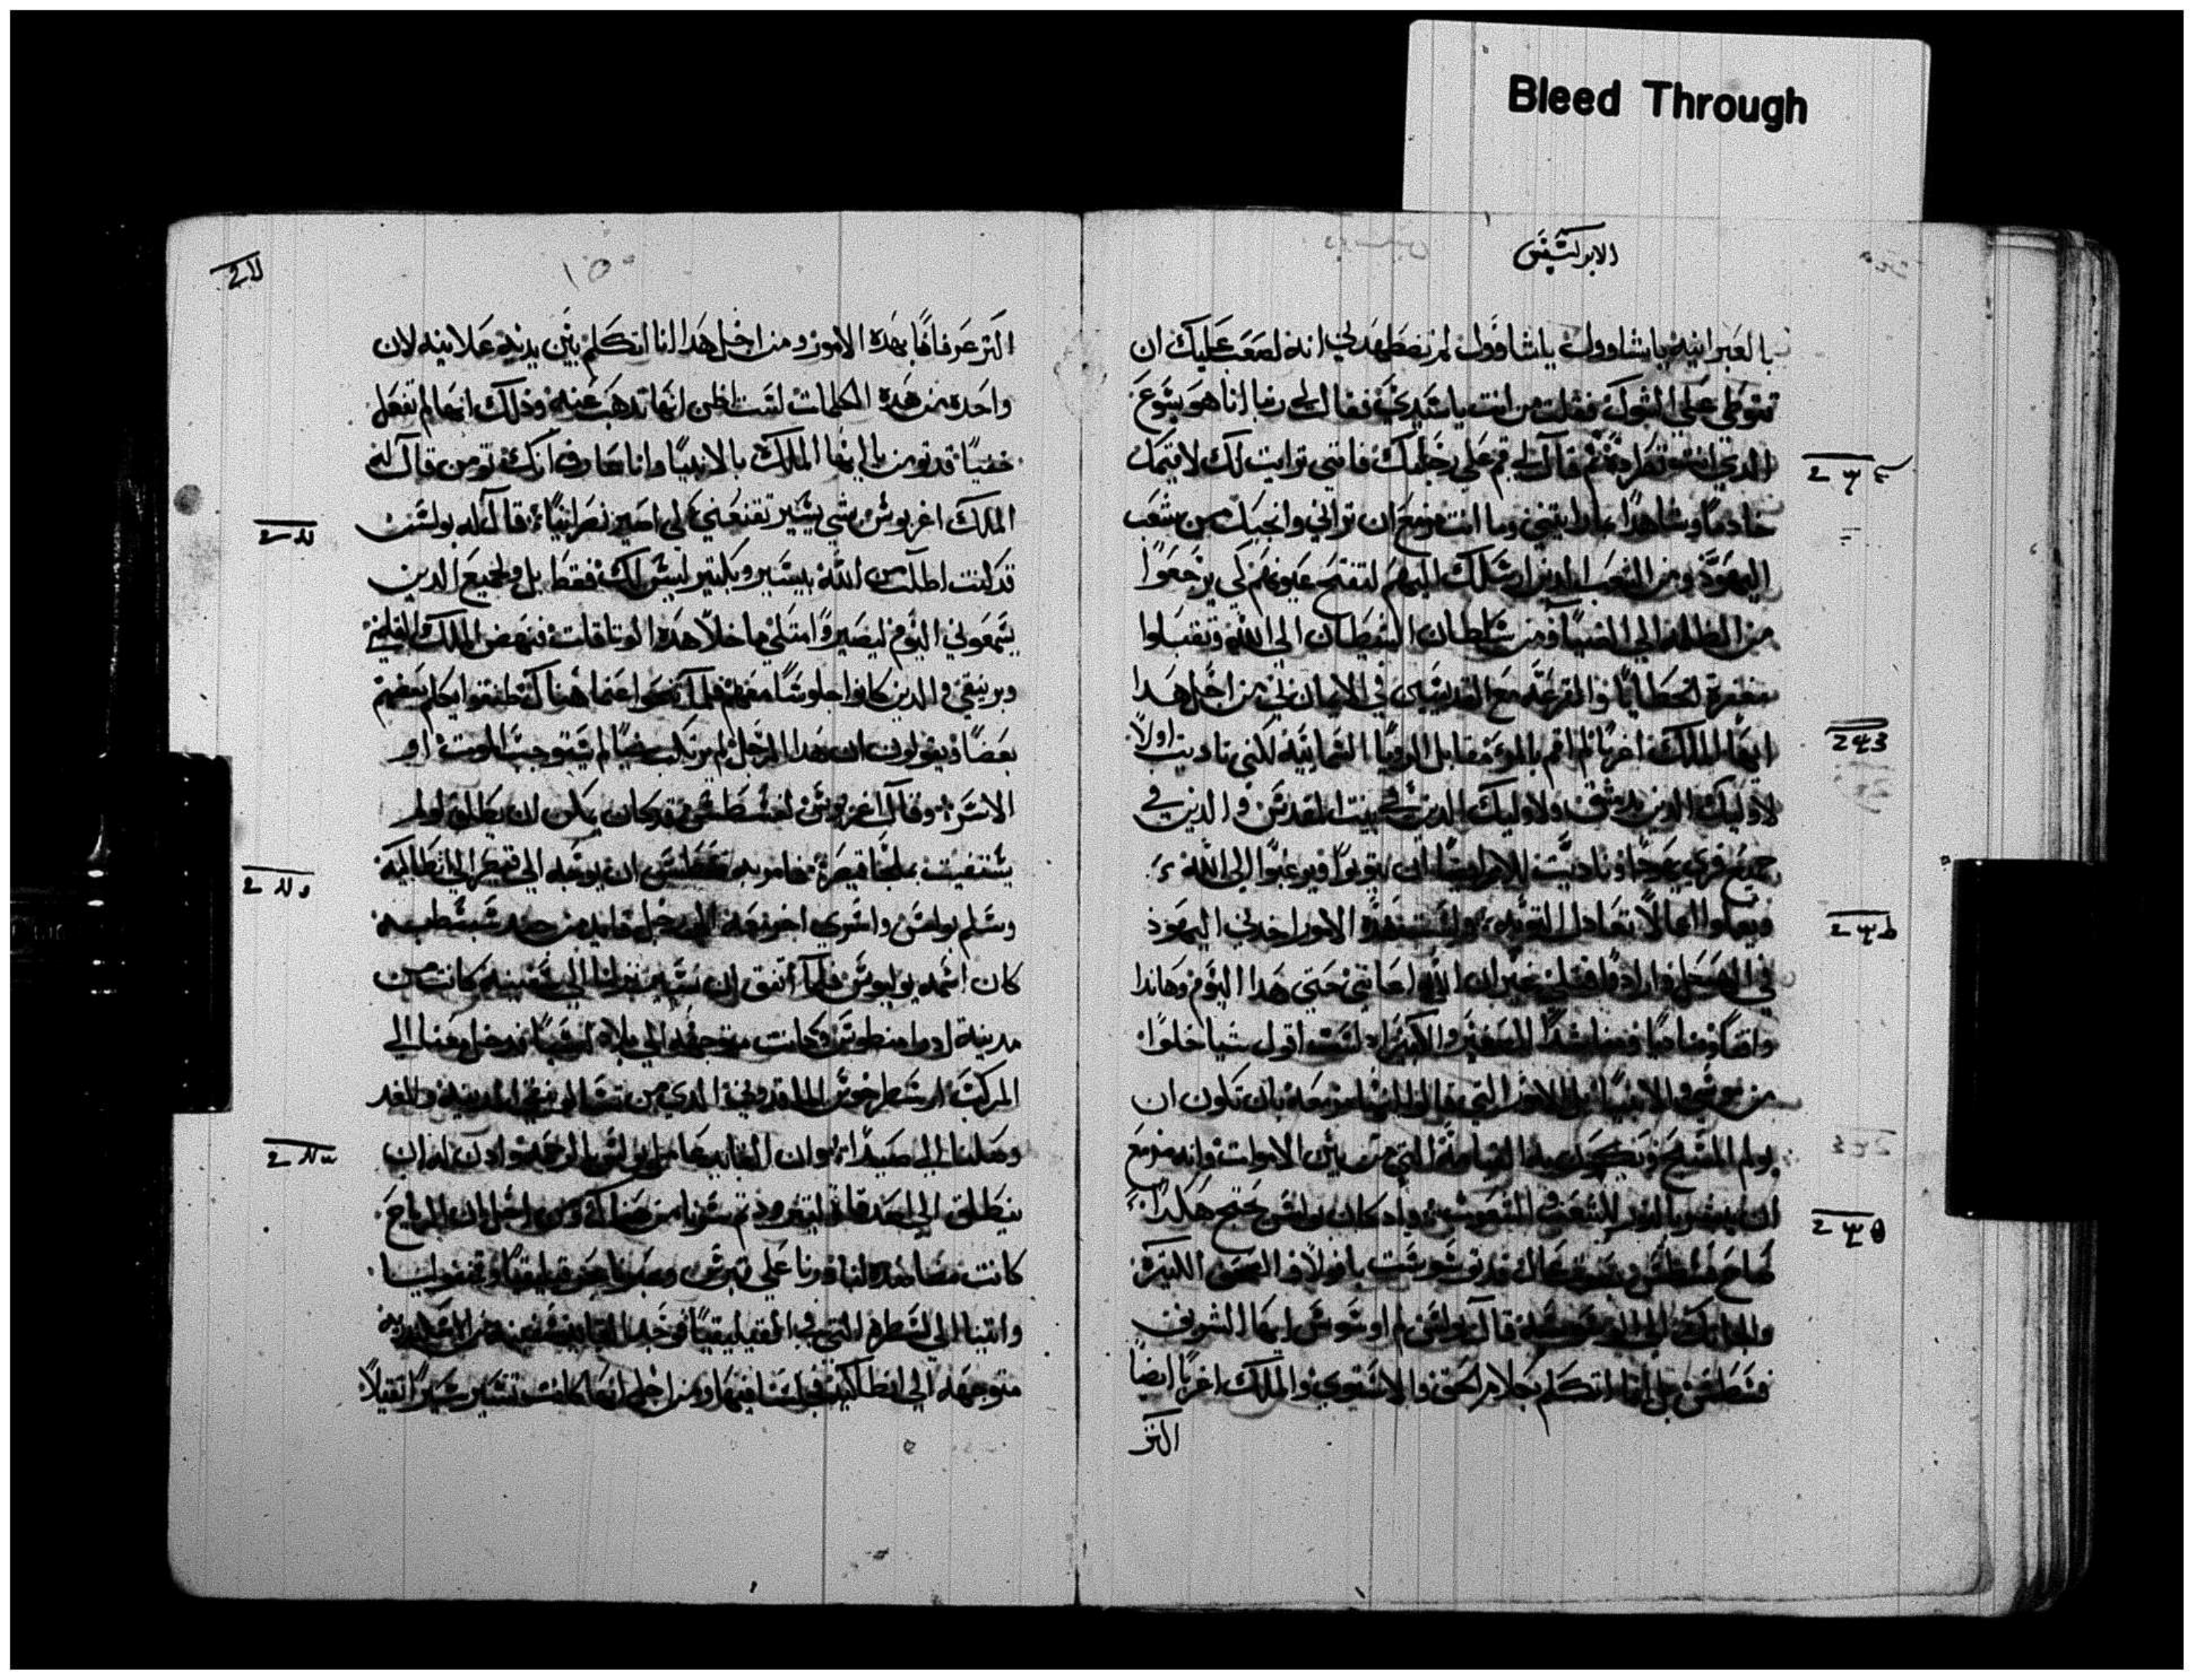 Bleed Through
الابركسيس
بالعبرانيه ياشاوول ياشاوول لم تضطهدني انه لصعب عليك ان
تتوطي علي الشوك فقلت من انت ياسيدي فقال لي ربنا انا هو يسوع
الدي انت تطرده قم علي رجليك فانني ترايت لك لاقيمك
خادما وشاهدا بما رايتني وما انت مزمع ان تراني وانجيك من شعب
اليهود ومن الشعب الدين ارسلك اليهم لتفتح عيونهم لكي يرجعوا
من الظلمه الي الضيا ومن سلطان الشيطان الي الله وتقبلوا
مغفرة الخطايا والقرعه مع القديسين في الايمان بي من اجل هدا
ايها الملك اغربا لم اقم بالمره مقابل الرويا السمايية لكني ناديت اولا
لاوليك الدين بدمشق ولاوليك الدين في بيت المقدس والدين في
جميع قري يهودا وناديت للامم ايضا ان يتوبوا ويرغبوا الي الله
ويعملوا اعمالا تعادل التوبه ولسبب هده الامور اخدني اليهود
في الهيكل وارادوا قتلي غير ان الله اعانني حتي هدا اليوم وهاندا
واقفا ومناديا ومناشدا للصغير والكبير لست اقول شيا خلوا
من موسي والانبيا بل الامور التي قالوا انها مزمعه بان تكون ان
يولم المسيح ويكون بدء القيامة التي من بين الاموات وانه مزمع
ان يبشر بالنور للشعب والشعوب واد كان بولس يحتج هكدا
صاح فسطس بصوت عال قد توسوست يا فولا والصحف الكثيره
الي الوسوسه قال بولس لم اوسوس ايها الشريف
فسطس بل انا اتكلم بكلام الحق والاستوي والملك اغربا ايضا
اكثر
١٥٠
اكثر عرفانا بهده الامور ومن اجل هدا انا اتكلم بين يديه علانيه لان
واحده من هده الكلمات لست اظن انها تدهب عنه ودلك انها لم تفعل
خفيا قد تومن يا ايها الملك بالانبيا وانا عارف انك تومن قال له
الملك اغربوس بشي يسير تقنعني لكي اصير نصرانيا قال له بولس
قد كنت اطلب من الله بيسير وبكثير ليس لك فقط بل ولجميع الدين
يسمعوني اليوم ليصيروا مثلي ما خلا هده الوتاقات فنهض الملك والقاضي
وبرنيقي والدين كانوا جلوسا معهم فلما تنحوا عنا هناك طفقوا يكلم بعضهم
بعضا ويقولون ان هدا الرجل لم يرتكب شيا لم يستوجب الموت او
الاسر وقال اغربوس لفسطس قد كان يمكن ان يطلق لو لم
يستغيث بملجا قيصر فامر به فسطس ان يوجه الي قيصر الي انطاليه
وسلم بولس واسري اخر معه الي رجل قايد من جند سبسطيه
كان اسمه يوليوس فلما اتفق ان نسير نزلنا الي سفينه كانت من
مدينة ادرامنطوس وكانت متوجهه الي بلاد اسيا فدخل معنا الي
المركب ارسطرخوس الماقدوني الدي من تسالونيقي المدينه والغد
وصلنا الي صيدا وان القايد عامل بولس بالرحمه وادن له ان
ينطلق الي اصدقايه ليتزود تم سرنا من هناك ومن اجل ان الرياح
كانت مضادده لنا درنا علي قبرس وعبرنا بحر قيليقيا وبمفوليا
واتينا الي لسطره التي في القيليقيا فوجد القايد سفينه من الاسكندريه
متوجهه الي انطاكيه فاجلسنا فيها ومن اجل انها كانت تسير سيرا تقيلا